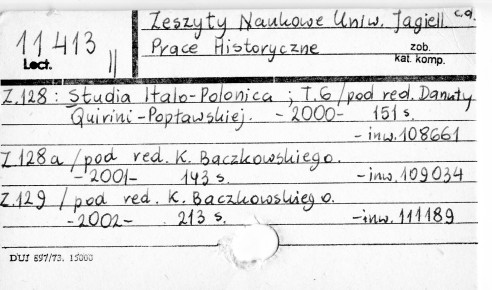 Zeszyty Naukowe Uniw. Jagiell. c.d.
11413 II Prace Historyczne zob.
Lect. kat. komp.
Z.128: Studia Italo-Polonica; T.6/pod red. Danuty
Quirini-Popławskiej. -2000- 151 s.
-inw.108661
Z.128a/pod red. K. Baczkowskiego.
-2001- 143 s. -inw.109034
Z.129/pod red. K. Baczkowskiego.
-2002- 213 s. -inw.111189
DUJ 697/73. 15000